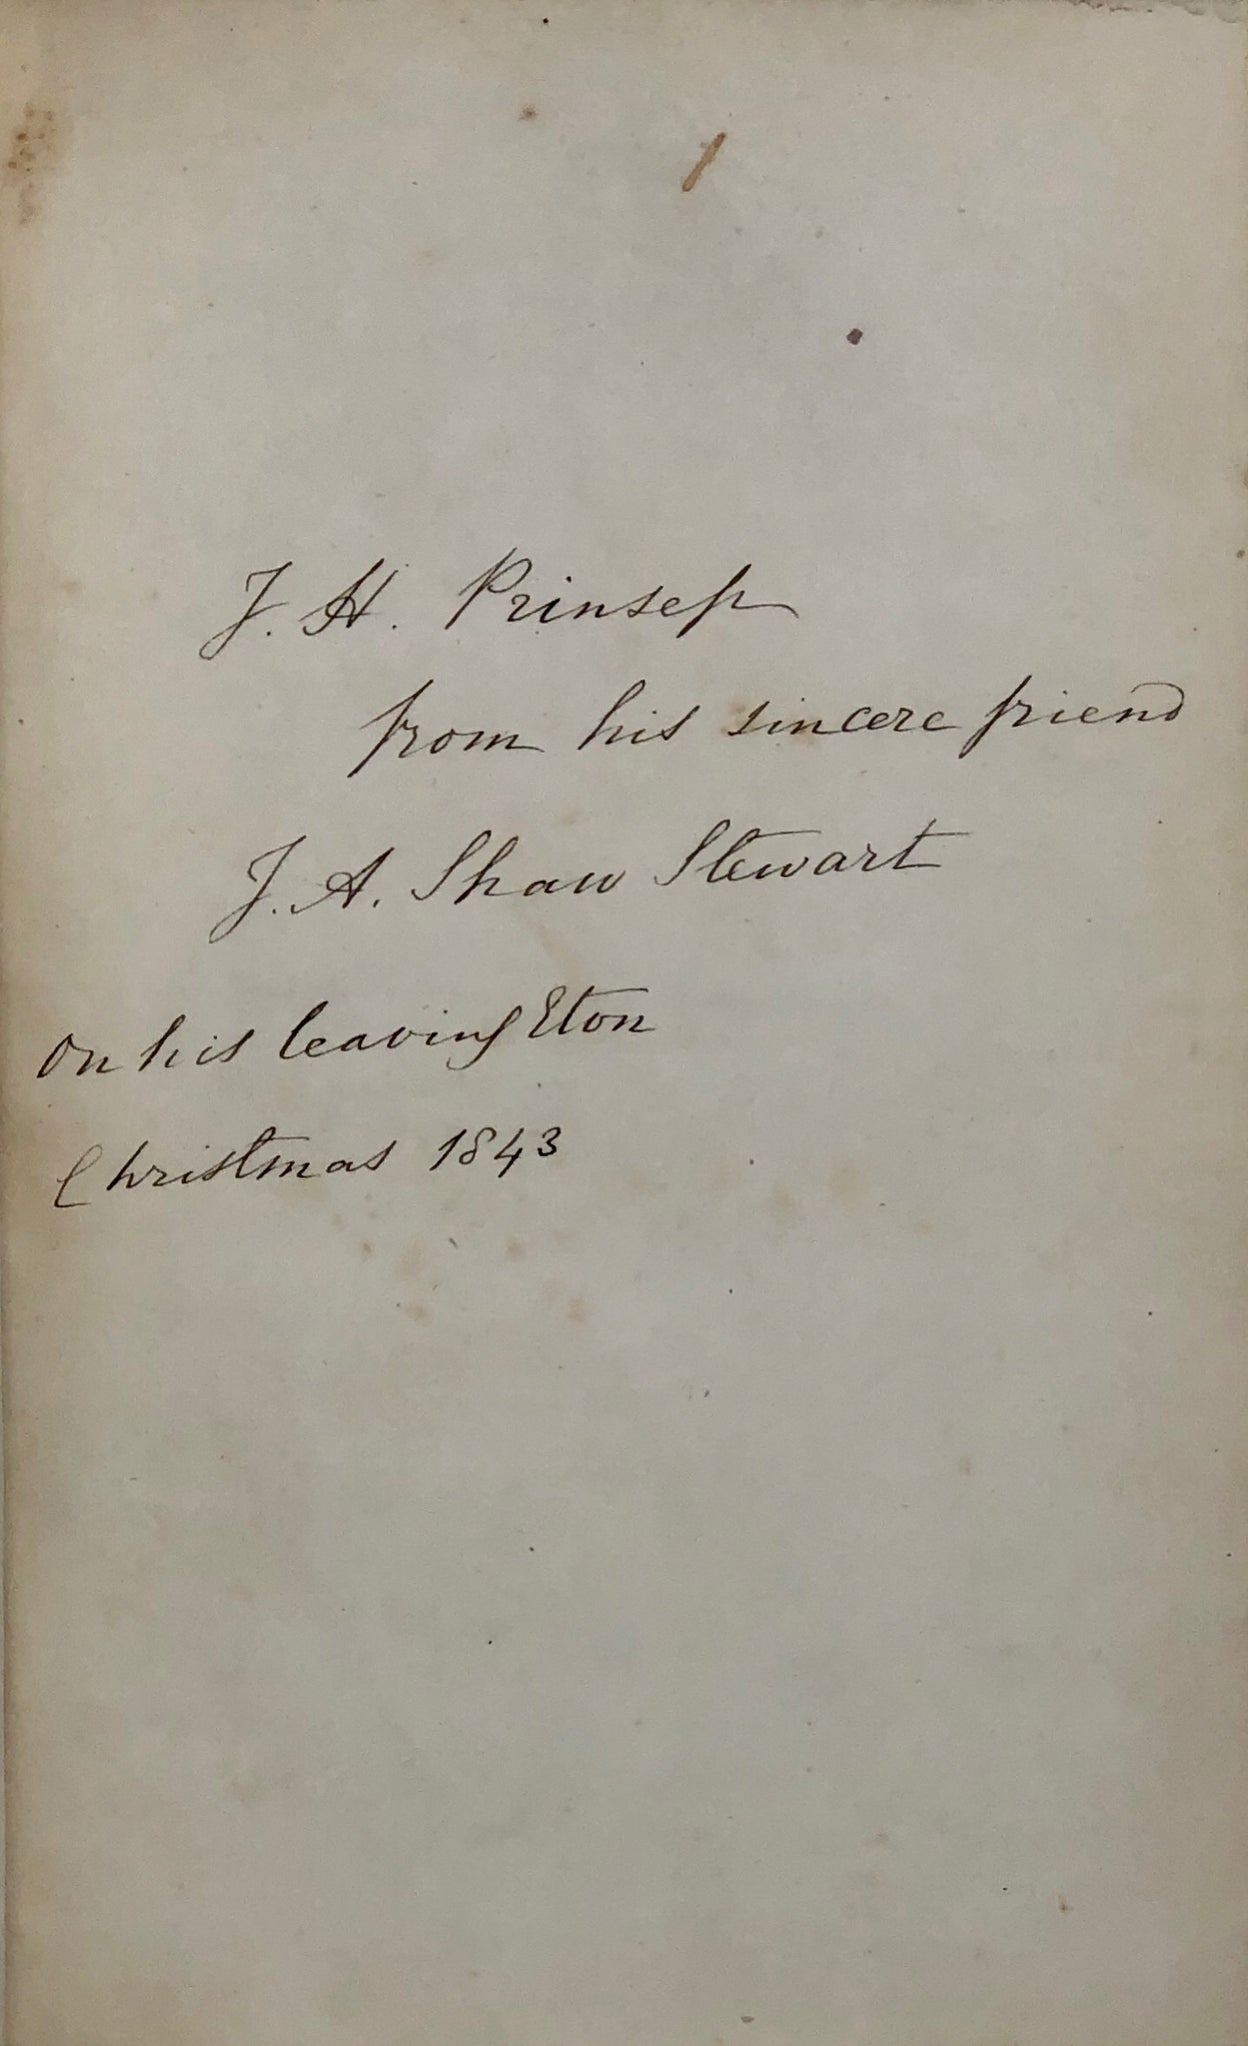 J. H. Prinsep
from his sincere friend
J. A. Shaw Stewart
on his leaving Eton
Christmas 1843